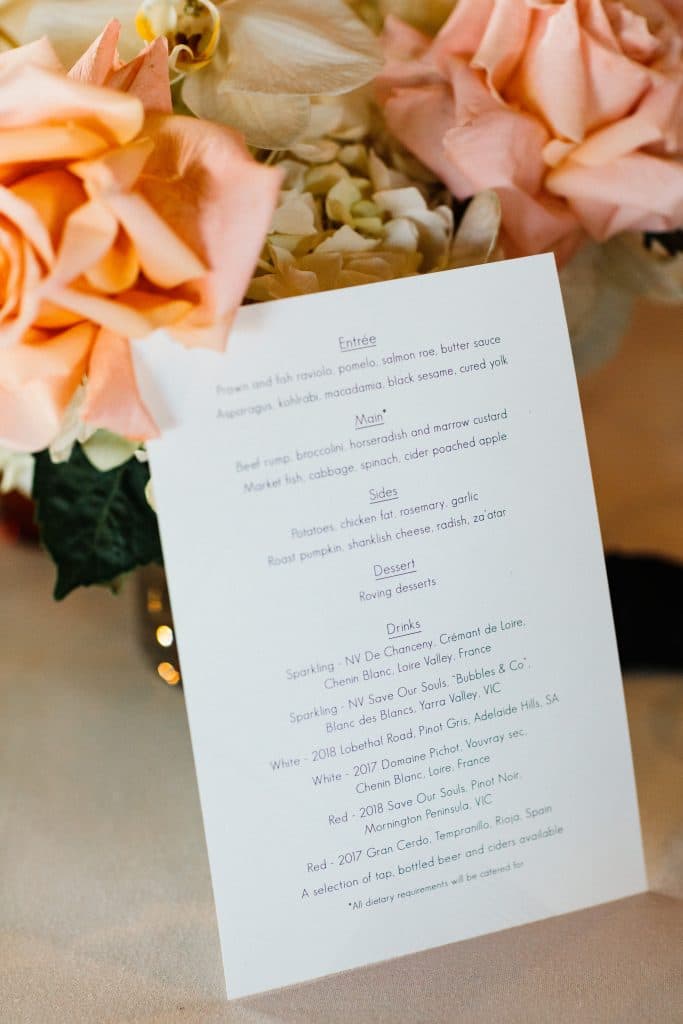 Entrée
Prawn and fish raviolo, pomelo, salmon roe, butter sauce
Asparagus, kohlrabi, macadamia, black sesame, cured yolk
Main*
Beef rump, broccolini, horseradish and marrow custard
Market fish, cabbage, spinach, cider poached apple
Sides
Potatoes, chicken fat, rosemary, garlic
Roast pumpkin, shanklish cheese, radish, za'atar
Dessert
Roving desserts
Drinks
Sparkling - NV De Chanceny, Crémant de Loire,
Chenin Blanc, Loire Valley, France
Sparkling - NV Save Our Souls, "Bubbles & Co",
Blanc des Blancs, Yarra Valley, VIC
White - 2018 Lobethal Road, Pinot Gris, Adelaide Hills, SA
White - 2017 Domaine Pichot, Vouvray sec,
Chenin Blanc, Loire, France
Red - 2018 Save Our Souls, Pinot Noir,
Mornington Peninsula, VIC
Red - 2017 Gran Cerdo, Tempranillo, Rioja, Spain
A selection of tap, bottled beer and ciders available
*All dietary requirements will be catered for